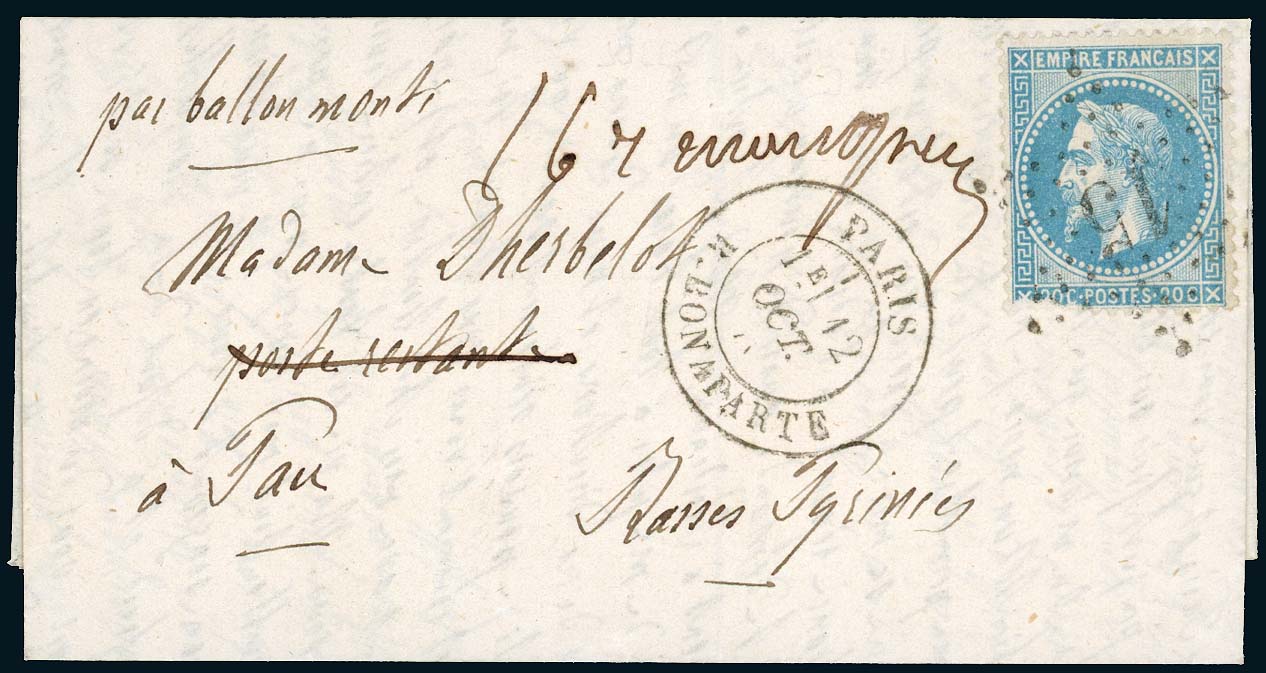 par ballon monté
16 r
Madame Dherbelot
poste restante
à Pau
Basses Pyrénées
PARIS
R. BONAPARTE
1E
12
OCT.
EMPIRE FRANCAIS
20C POSTES 20C